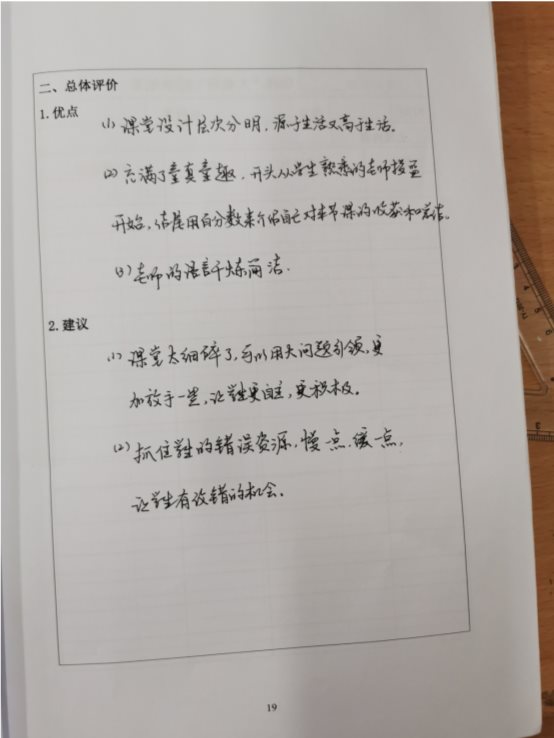 二、总体评价
1.优点
(1) 课堂设计层次分明，源于生活又高于生活。
(2) 充满了童真童趣，开头从学生熟悉的老师
开始，结尾用百分数来介绍自己对本节课的收获和总结。
(3) 老师的语言干炼简洁.
2.建议
(1) 课堂太细碎了，可以用大问题引领，更
加放手一些，让学生更自主，更积极。
(2) 抓住学生的错误资源，慢一点，缓一点，
让学生有改错的机会。
19